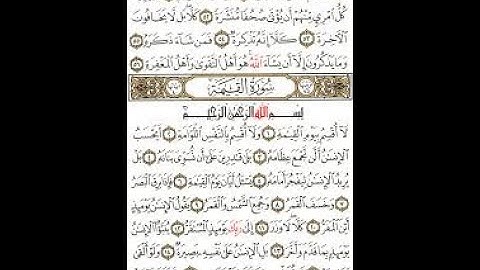 كُلُّ ٱمْرِئٍ مِّنْهُمْ أَن يُؤْتَىٰ صُحُفًا مُّنَشَّرَةً ٥٢ كَلَّا ۖ بَل لَّا يَخَافُونَ
ٱلْـَٔاخِرَةَ ٥٣ كَلَّآ إِنَّهُۥ تَذْكِرَةٌ ٥٤ فَمَن شَآءَ ذَكَرَهُۥ ٥٥
وَمَا يَذْكُرُونَ إِلَّآ أَن يَشَآءَ ٱللَّهُ ۚ هُوَ أَهْلُ ٱلتَّقْوَىٰ وَأَهْلُ ٱلْمَغْفِرَةِ ٥٦
سُورَةُ الْقِيَامَةِ
بِسْمِ ٱللَّهِ ٱلرَّحْمَٰنِ ٱلرَّحِيمِ
لَآ أُقْسِمُ بِيَوْمِ ٱلْقِيَٰمَةِ ١ وَلَآ أُقْسِمُ بِٱلنَّفْسِ ٱللَّوَّامَةِ ٢ أَيَحْسَبُ
ٱلْإِنسَٰنُ أَلَّن نَّجْمَعَ عِظَامَهُۥ ٣ بَلَىٰ قَٰدِرِينَ عَلَىٰٓ أَن نُّسَوِّىَ بَنَانَهُۥ ٤ بَلْ
يُرِيدُ ٱلْإِنسَٰنُ لِيَفْجُرَ أَمَامَهُۥ ٥ يَسْـَٔلُ أَيَّانَ يَوْمُ ٱلْقِيَٰمَةِ ٦ فَإِذَا بَرِقَ ٱلْبَصَرُ
٧ وَخَسَفَ ٱلْقَمَرُ ٨ وَجُمِعَ ٱلشَّمْسُ وَٱلْقَمَرُ ٩ يَقُولُ ٱلْإِنسَٰنُ يَوْمَئِذٍ
أَيْنَ ٱلْمَفَرُّ ١٠ كَلَّا لَا وَزَرَ ١١ إِلَىٰ رَبِّكَ يَوْمَئِذٍ ٱلْمُسْتَقَرُّ ١٢ يُنَبَّؤُا۟ ٱلْإِنسَٰنُ
يَوْمَئِذٍۭ بِمَا قَدَّمَ وَأَخَّرَ ١٣ بَلِ ٱلْإِنسَٰنُ عَلَىٰ نَفْسِهِۦ بَصِيرَةٌ ١٤ وَلَوْ أَلْقَىٰ